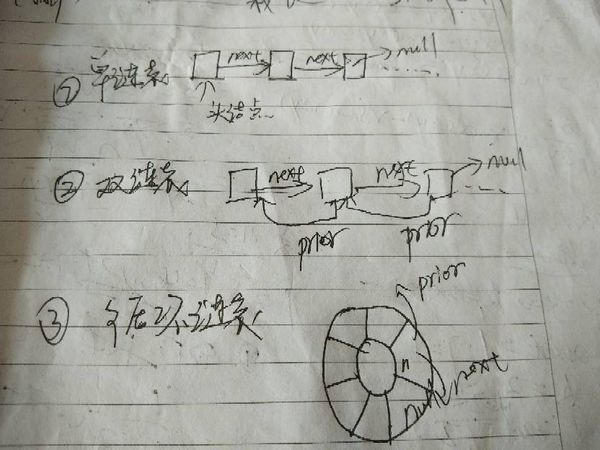 ① 单链表 next next null
头结点
② 双链表 next next null
prior prior
③ 循环链表 prior
n
null next